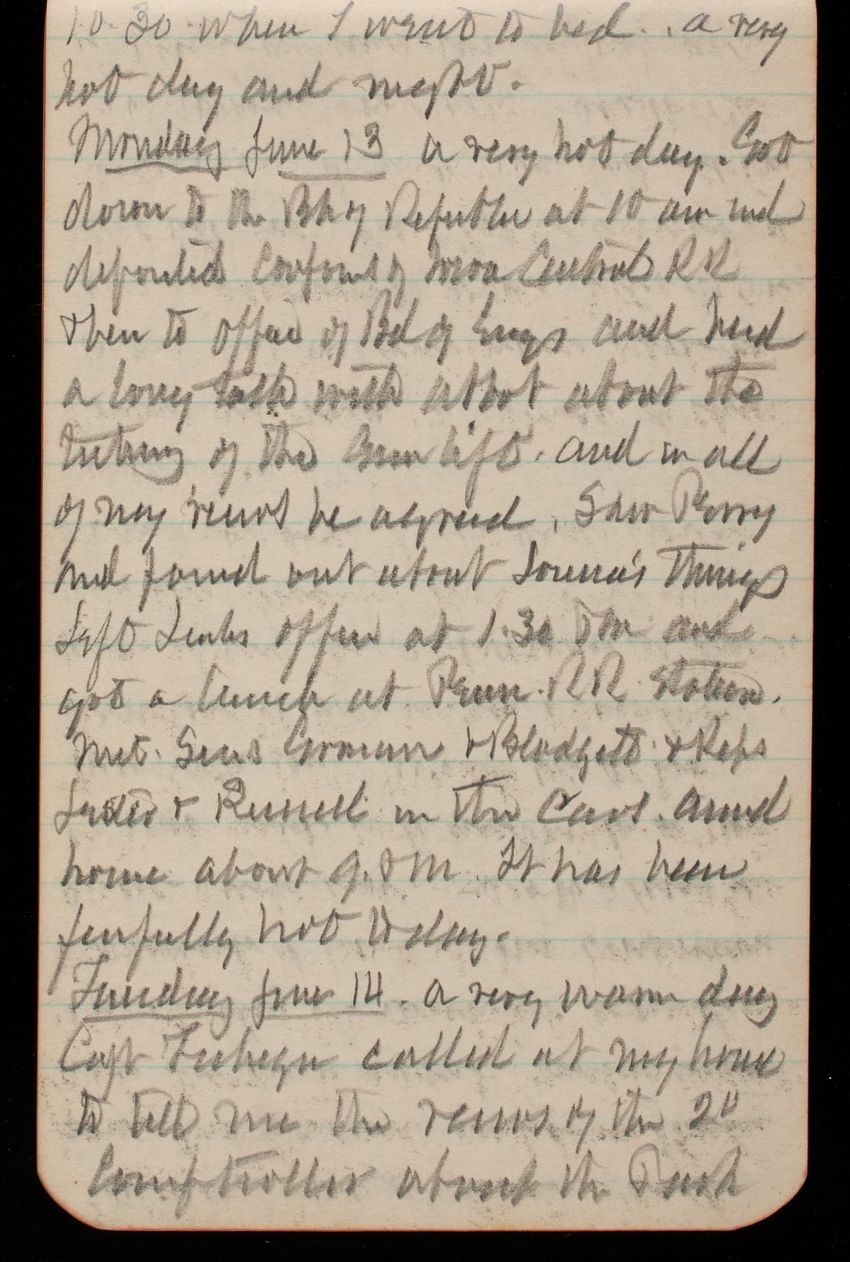 10.30 when I went to bed. a very
hot day and night.
Monday June 13 a very hot day. Got
down to the Bk of Republic at 10 am and
deposited Coupons of Iowa Central RR
then to office of Bd of Engs and had
a long talk with Abbot about the
testing of the Gun lift. and in all
of my views he agreed. Saw Perry
and found out about Louisa's Things
Left office at 1.30 PM and
got a lunch at Penn. RR Station.
Met. Sens Gorman & Blodgett & Reps
& Russell in the Cars. arrived
home about 9. PM. It has been
fearfully hot today.
Tuesday June 14. a very warm day
Capt called at my house
to tell me the views of the 2d
Comptroller about the Rock